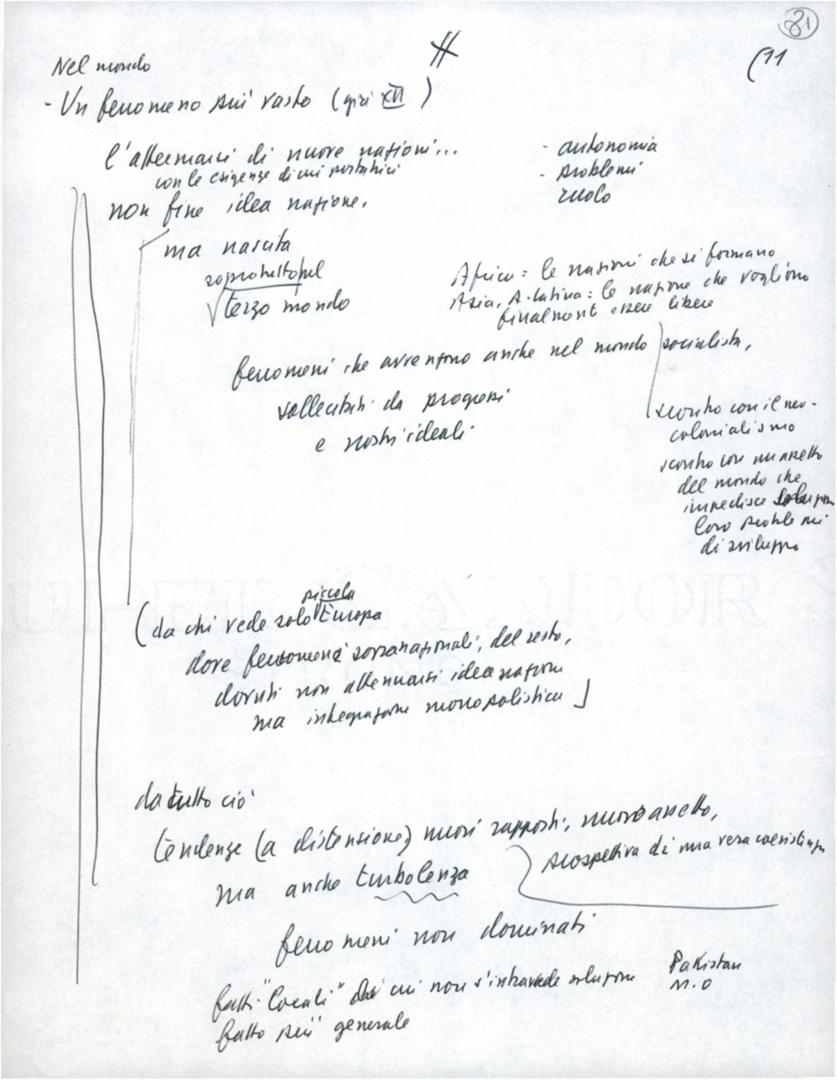 81
(11
Nel mondo
- Un fenomeno più vasto (già XII)
l'affermarsi di nuove nazioni...
con le esigenze di cui portatrici
- autonomia
- problemi
ruolo
non fine idea nazione,
ma nascita
soprattutto nel
terzo mondo
Africa: le nazioni che si formano
Asia, A. latina: le nazione che vogliono
finalment essere libere
fenomeni che avvengono anche nel mondo socialista,
sollecitati da progressi
e nostri ideali
scontro con il neo-
colonialismo
scontro con un assetto
del mondo che
impedisce soluzione
loro problemi
di sviluppo
piccola
(da chi vede solo Europa
dove fenomeni sovranazionali, del resto,
dovuti non attenuarsi idea nazione
ma integrazione monopolistica
da tutto ciò
tendenze (a distensione) nuovi rapporti, nuovo assetto,
prospettiva di una vera coesistenza
ma anche turbolenza
fenomeni non dominati
fatti "locali" di cui non s'intravede soluzione
Pakistan
M.O
fatto più generale